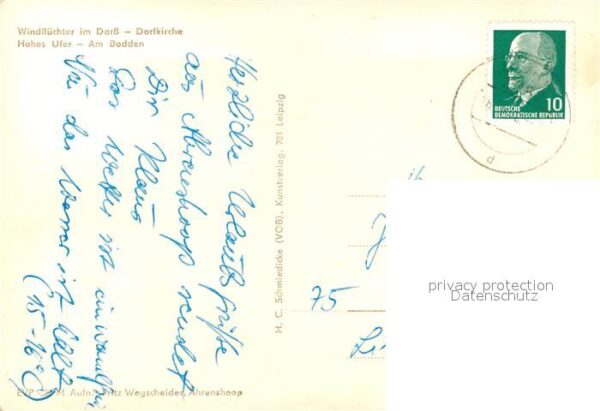 Windflüchter im Darß – Dorfkirche
Hohes Ufer – Am Bodden
Herzliche Urlaubsgrüße
aus Ahrenshoop sendet
Dir Klaus
Das Wetter ist einwandfrei
Nur das Wasser ist kalt
(15-16°)
H. C. Schmiedicke (VOB), Kunstverlag, 701 Leipzig
Aufn.: Fritz Wegscheider, Ahrenshoop
10
DEUTSCHE
DEMOKRATISCHE REPUBLIK
75
privacy protection
Datenschutz